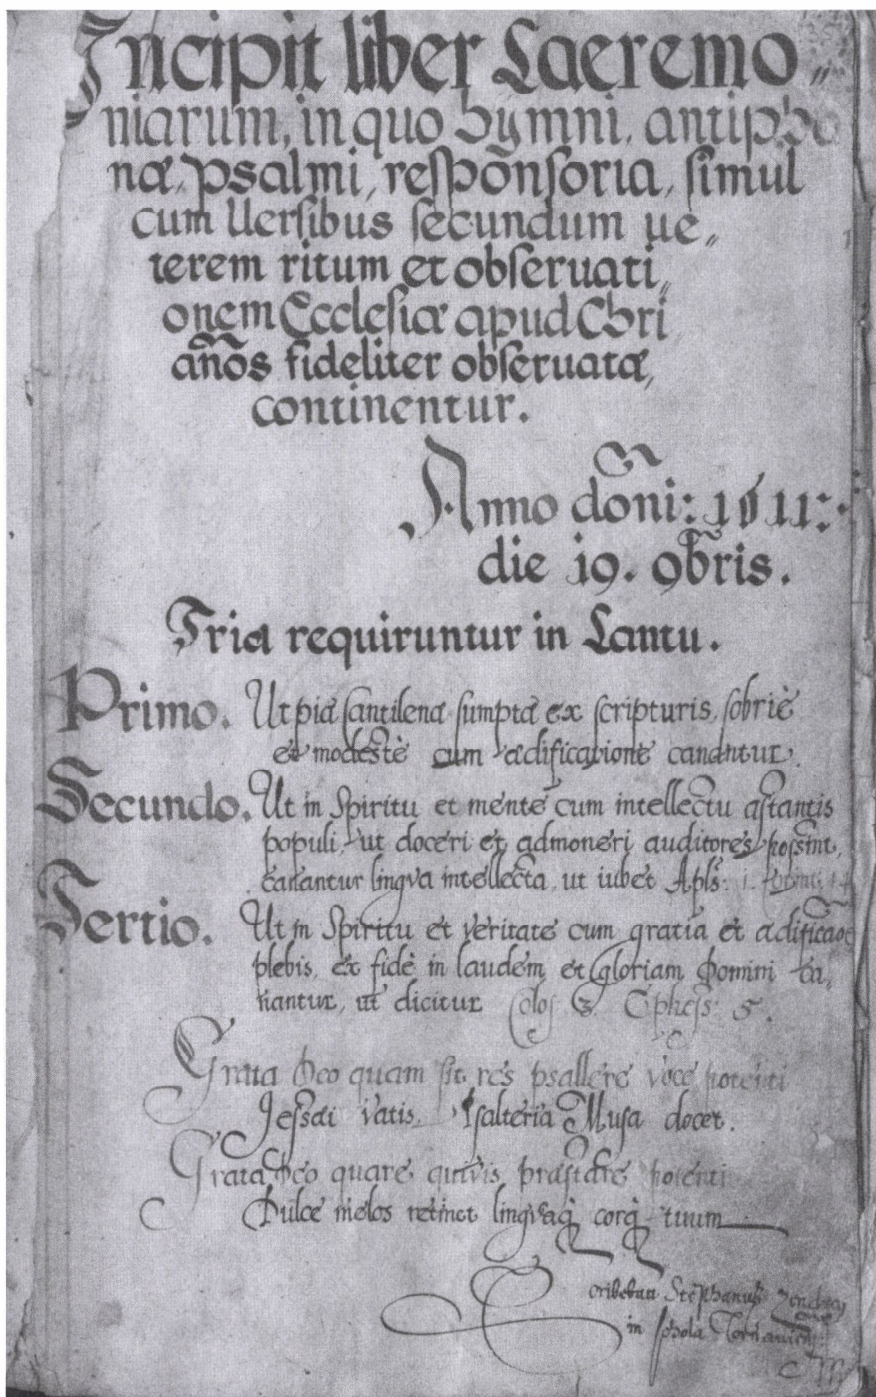 Incipit liber Caeremo„
niarum, in quo hymni, antipho
næ, psalmi, respōnsoria, simul
cum Uersibus secundum ue„
terem ritum et obseruati„
onem Ecclesiæ apud Chri
anõs fideliter obseruatæ,
continentur.
Anno dõni: 1611:
die 19. 9bris.
Tria requiruntur in Cantu.
Primo. Ut piæ Cantilenæ sumptæ ex scripturis, sobriè
et modestè cum ædificatione canantur.
Secundo. Ut in Spiritu et mente cum intellectu astantis
populi, ut doceri et admoneri auditores possint,
canantur lingva intellecta, ut iubet Apls: 1. Corint: 14
Tertio. Ut in Spiritu et veritate cum gratia et ædificaõe
plebis, ex fide in laudem et gloriam Domini ca„
nantur, ut dicitur Colos 3. Ephess: 5.
Grata Deo quam sit res psallere voce potenti
Jessæi vatis Psalteria Musa docet.
Grata Deo quare quivis præstare potenti
Dulce melos retinet lingvaq corq tuum
Scribebat Stephanus
in schola